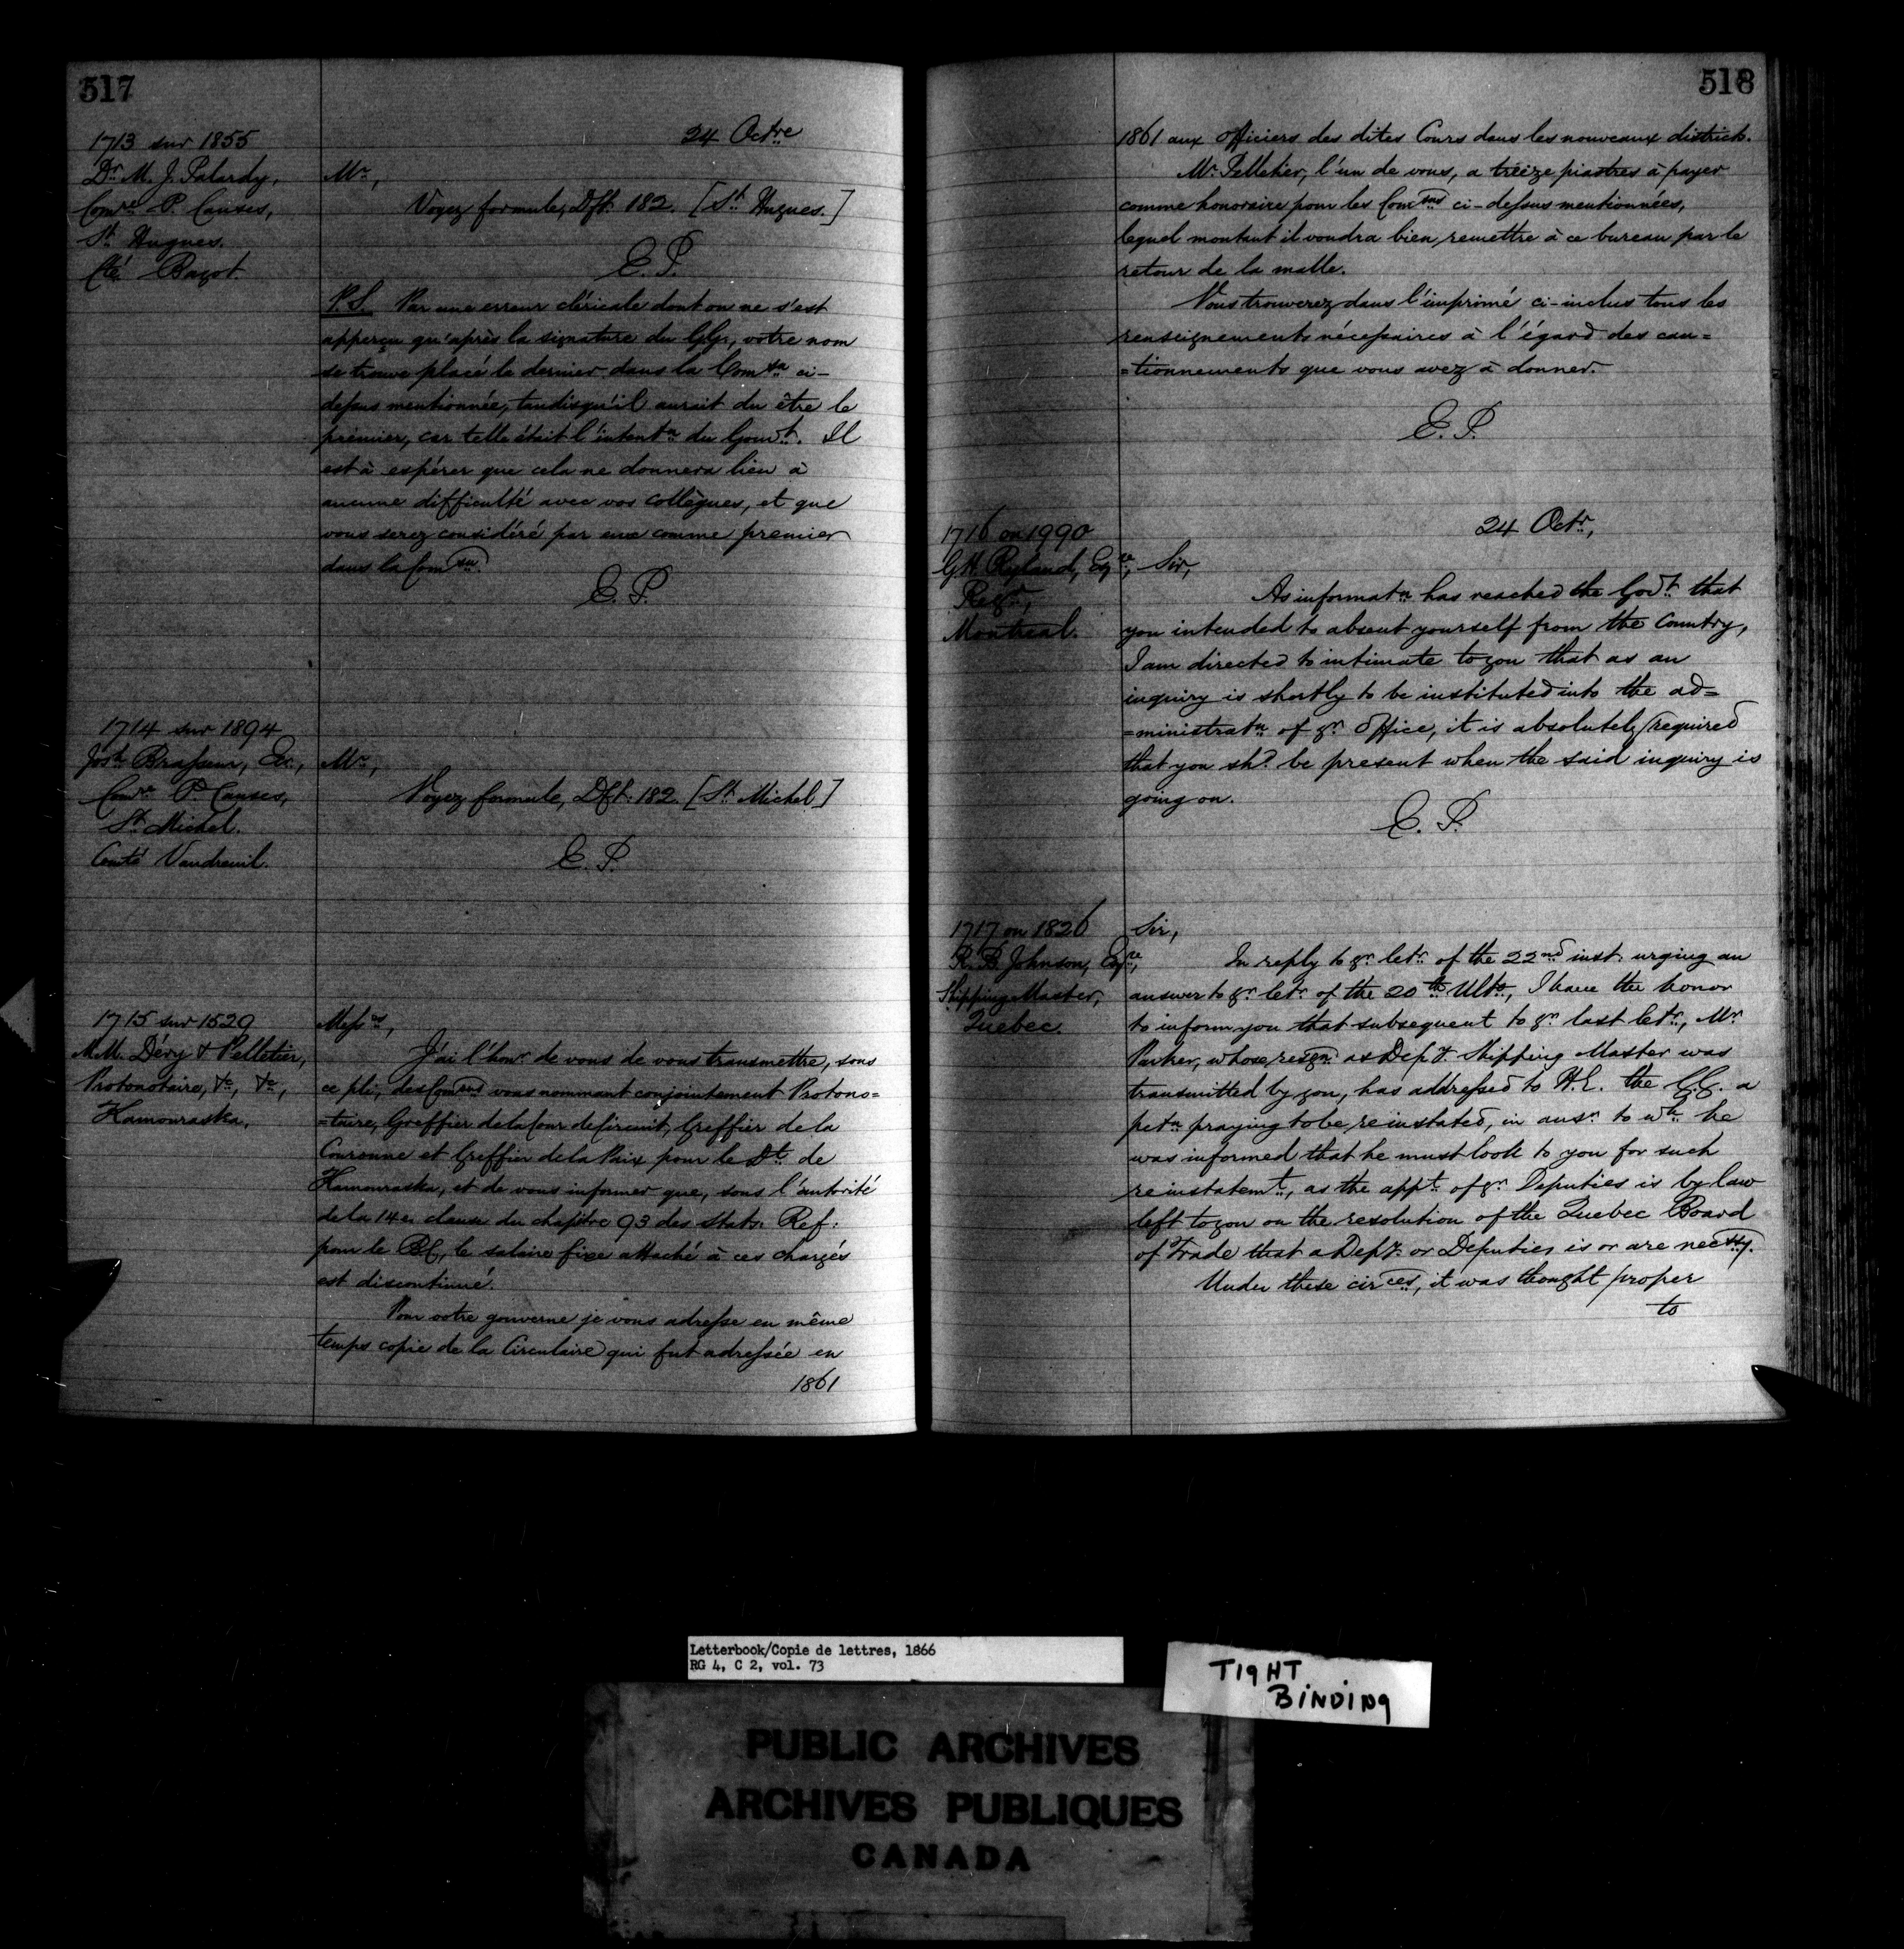 517
1713 sur 1855
Dr. M. J. Palardy,
Comre P. Causes,
St. Hugues.
Cté Bagot.
24 Octre
Mr.,
Voyez formule, Dft. 182. [St. Hugues.]
E. P.
P.S. Par une erreur cléricale dont on ne s'est
apperçu qu'après la signature du GG., votre nom
se trouve placé le dernier dans la Comsn ci-
dessus mentionnée, tandisqu'il aurait du être le
premier, car telle était l'intentn du Gouvt. Il
est à espérer que cela ne donnera lieu à
aucune difficulté avec vos collègues, et que
vous serez considéré par eux comme premier
dans la Comsn.
E. P.
1714 sur 1894
Josh Brasseur, Ecr.,
Comre P. Causes,
St. Michel.
Comté Vaudreuil.
Mr.,
Voyez formule, Dft. 182. [St. Michel]
E. P.
1715 sur 1529
M.M. Déry & Pelletier,
Protonotaire, &c, &c,
Kamouraska.
Messrs,
J'ai l'honr de vous de vous transmettre, sous
ce pli, des Comsns vous nommant conjointement Protono=
=taire, Greffier de la Cour de Circuit, Greffier de la
Couronne et Greffier de la Paix pour le Dt. de
Kamouraska, et de vous informer que, sous l'autorité
de la 14e clause du chapitre 93 des Stats. Ref:
pour le BC, le salaire fixe attaché à ces charges
est discontinué.
Pour votre gouverne je vous adresse en même
temps copie de la Circulaire qui fut adressée en
1861
518
1861 aux officiers des dites Cours dans les nouveaux districts.
Mr. Pelletier, l'un de vous, a treize piastres à payer
comme honoraire pour les Comsns ci-dessus mentionnées,
lequel montant il voudra bien remettre à ce bureau par le
retour de la malle.
Vous trouverez dans l'imprimé ci-inclus tous les
renseignements nécessaires à l'égard des cau=
=tionnements que vous avez à donner.
E. P.
1716 on 1990
G.H. Ryland, Esqre,
Regr,
Montreal.
24 Octr.,
Sir,
As informatn has reached the Govt. that
you intended to absent yourself from the Country,
I am directed to intimate to you that as an
inquiry is shortly to be instituted into the ad=
=ministratn of yr. Office, it is absolutely required
that you shd. be present when the said inquiry is
going on.
E. P.
1717 on 1826
R. B. Johnson, Esqre,
Shipping Master,
Quebec.
Sir,
In reply to yr letr. of the 22nd inst. urging an
answer to yr letr. of the 20th Ulto, I have the honor
to inform you that subsequent to yr. last letr., Mr
Parker, whose resgn. as Depy. Shipping Master was
transmitted by you, has addressed to H.E. the G.G. a
petn praying to be reinstated, in ansr. to wh. he
was informed that he must look to you for such
reinstatemt., as the appt. of yr. Deputies is by law
left to you on the resolution of the Quebec Board
of Trade that a Depy. or Deputies is or are necssty.
Under these circes, it was thought proper
to
Letterbook/Copie de lettres, 1866
RG 4, C 2, vol. 73
TIGHT
BINDING
PUBLIC ARCHIVES
ARCHIVES PUBLIQUES
CANADA